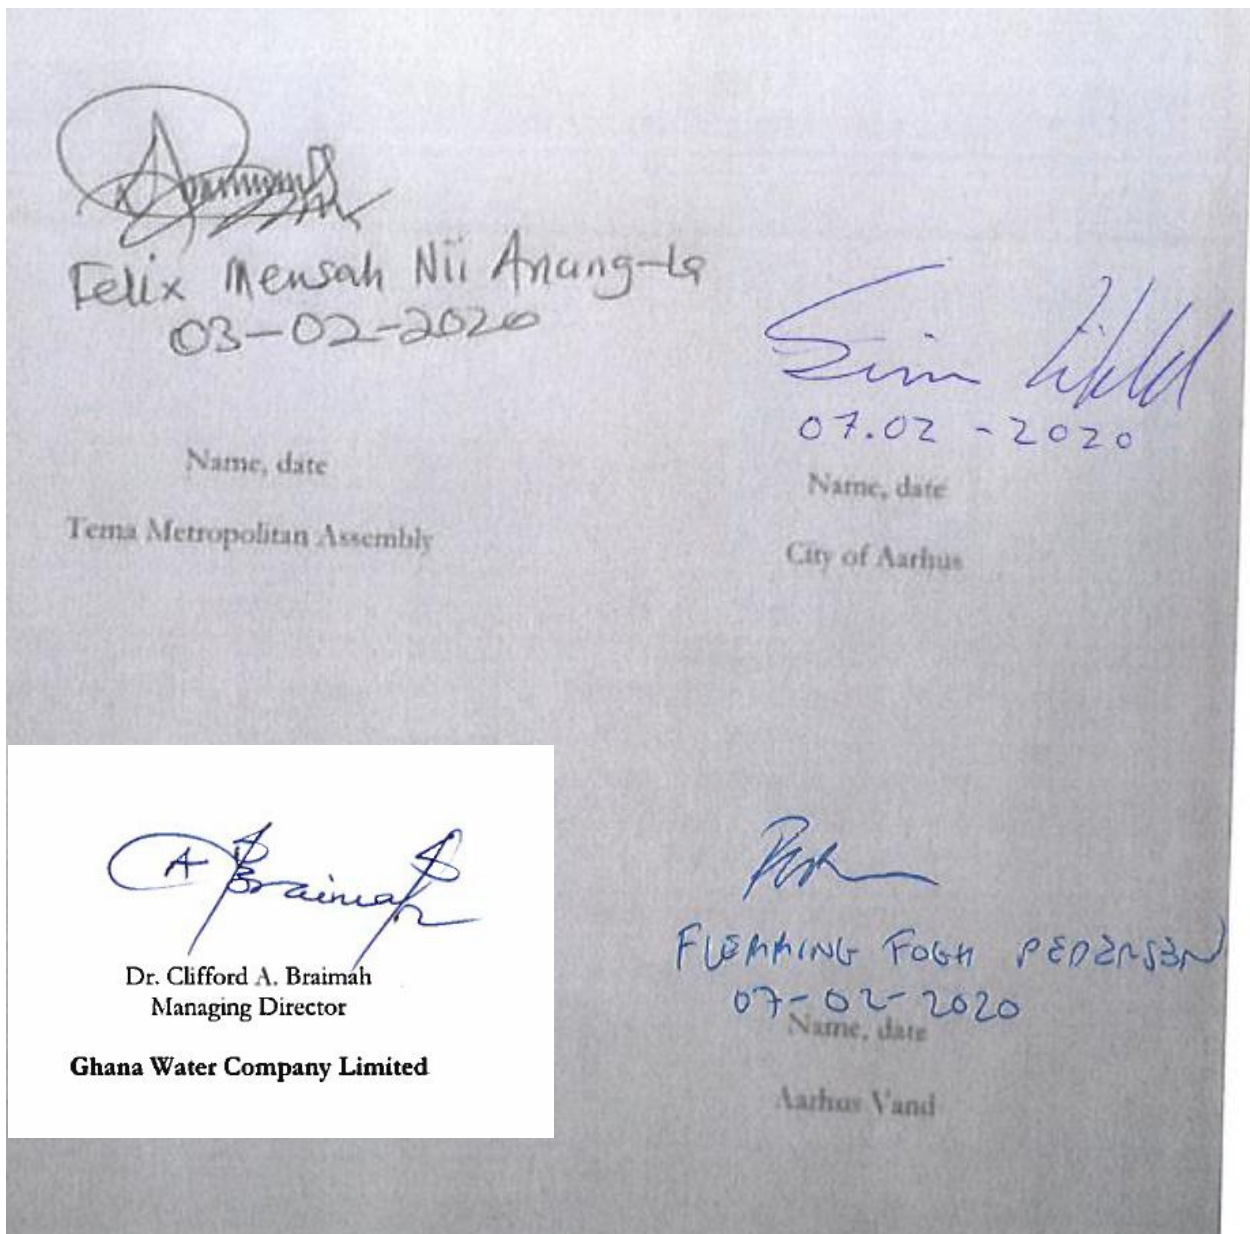 Felix Mensah Nii Anang-La
03-02-2020
Name, date
Tema Metropolitan Assembly
07.02-2020
Name, date
City of Aarhus
A Braimah
Dr. Clifford A. Braimah
Managing Director
Ghana Water Company Limited
FLEMMING FOGH PEDERSEN
07-02-2020
Name, date
Aarhus Vand